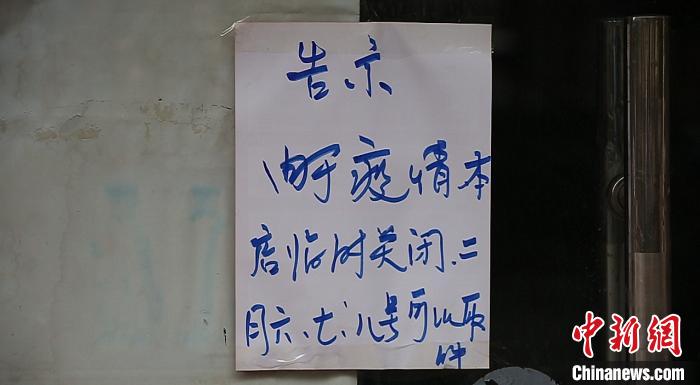 告示
由于疫情本
店临时关闭.二
月六、七、八号可以取
件
中新网
Chinanews.com